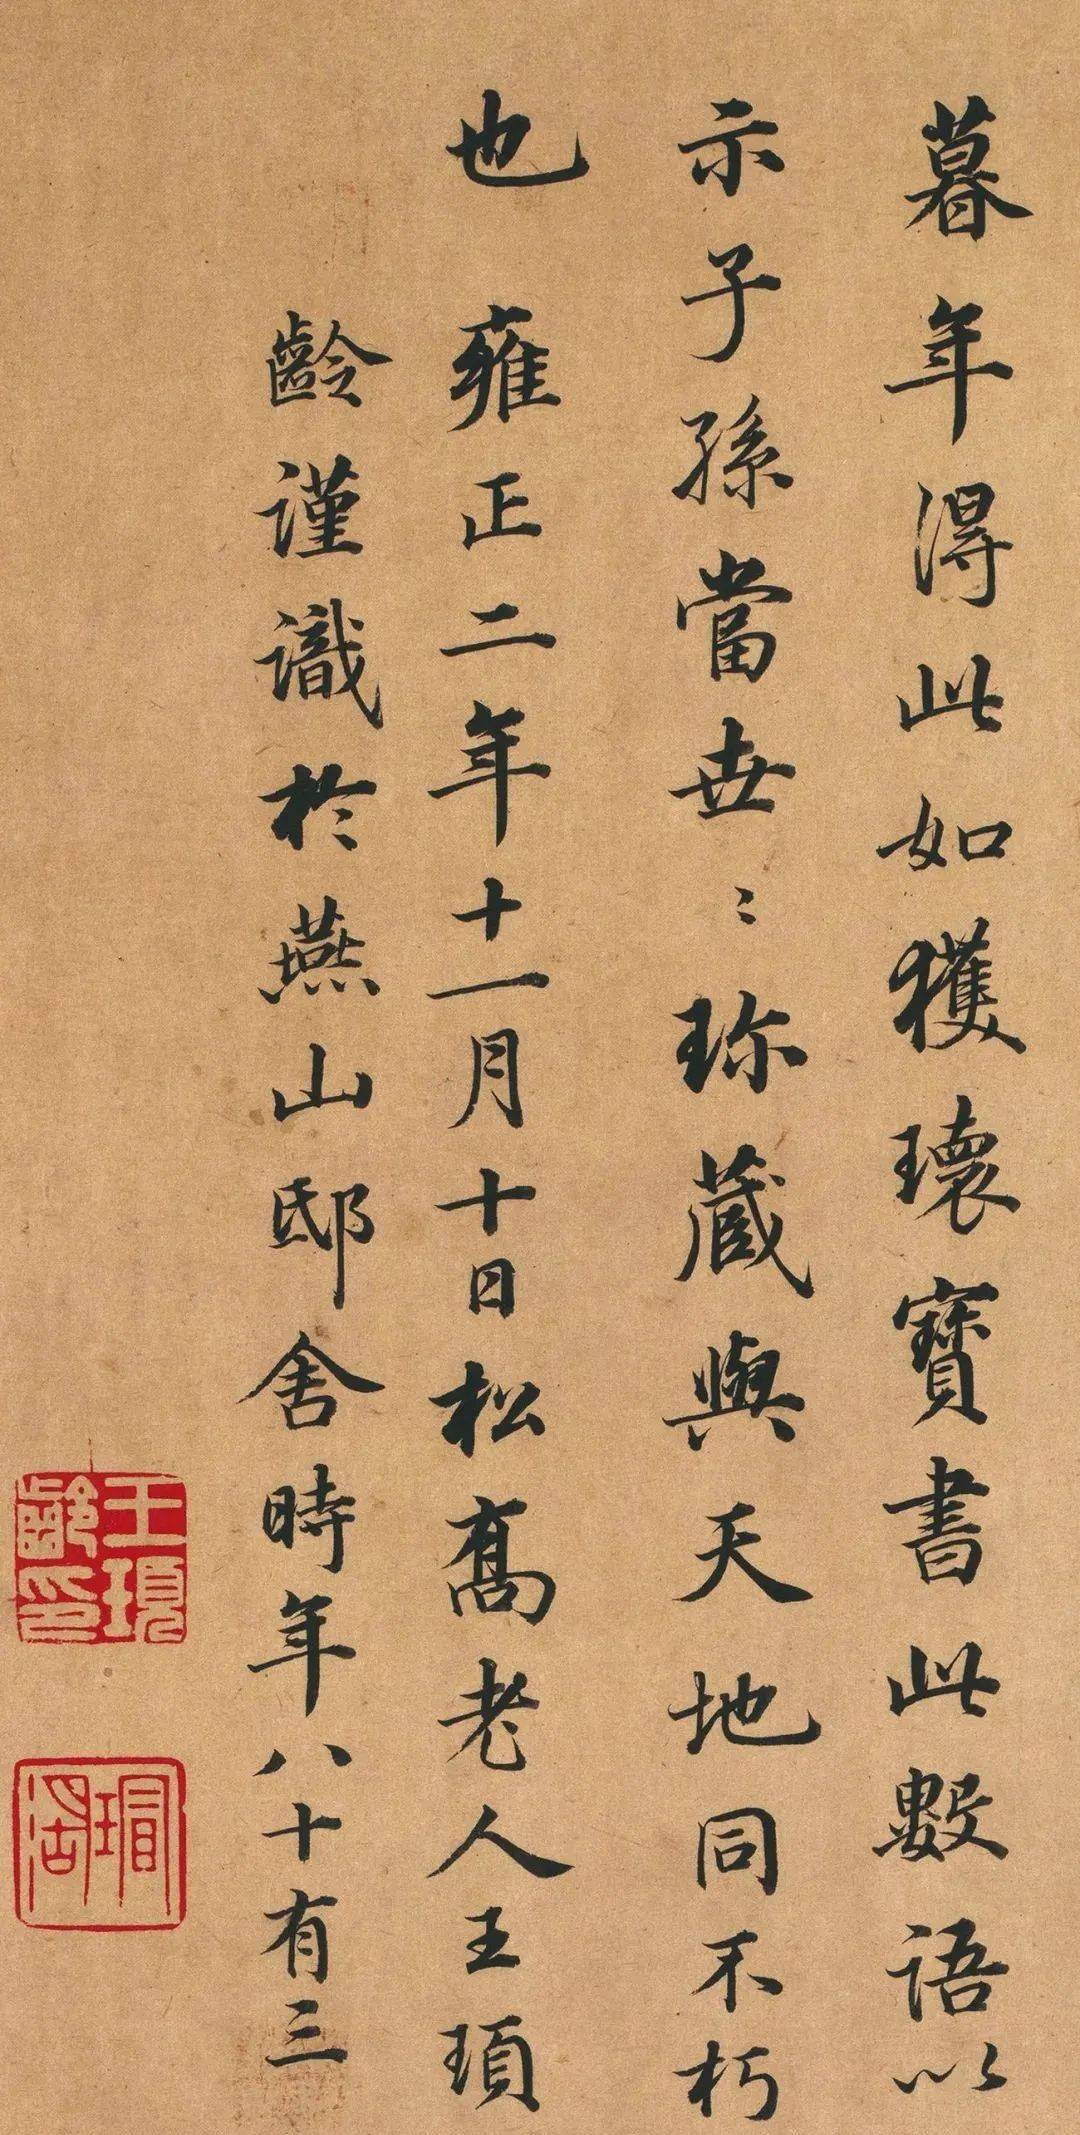 暮年得此如獲瓌寶書此數語以
示子孫當世〻珎藏與天地同不朽
也 雍正二年十一月十日松喬老人王頊
齡謹識於燕山邸舍時年八十有三
王頊齡印